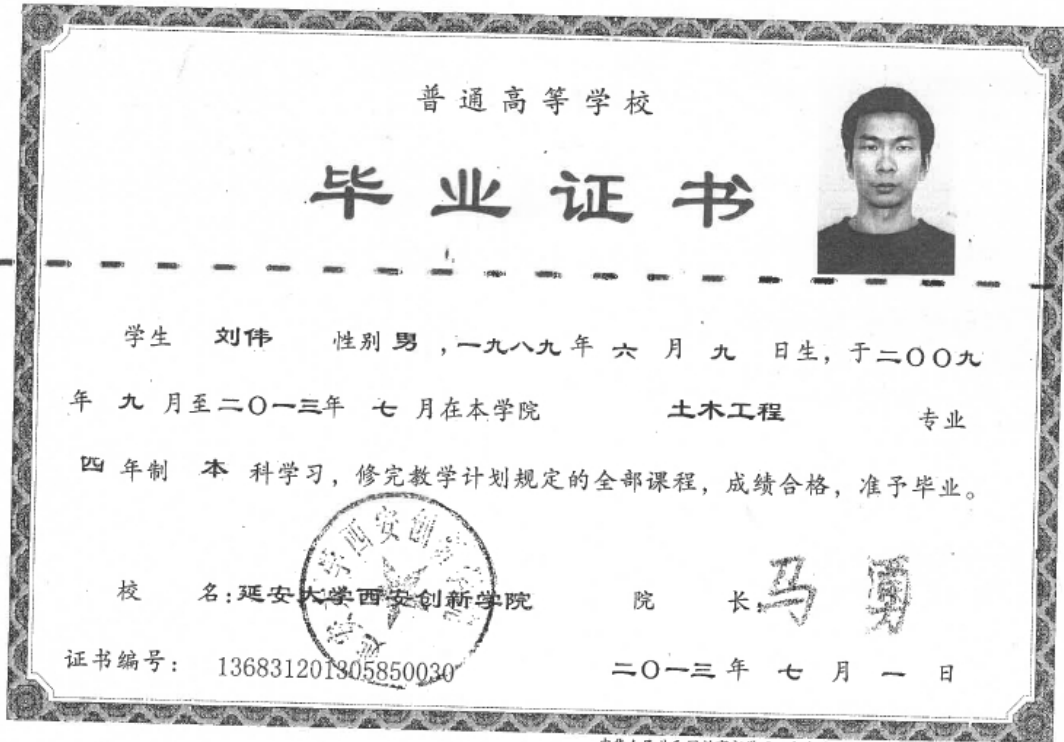 普通高等学校
毕业证书
学生 刘伟 性别 男 ,一九八九 年 六 月 九 日生，于二〇〇九
年 九 月至二〇一三年 七 月在本学院 土木工程 专业
四 年制 本 科学习，修完教学计划规定的全部课程，成绩合格，准予毕业。
校 名:延安大学西安创新学院 院 长: 马勇
证书编号： 136831201305850030 二〇一三 年 七 月 一 日